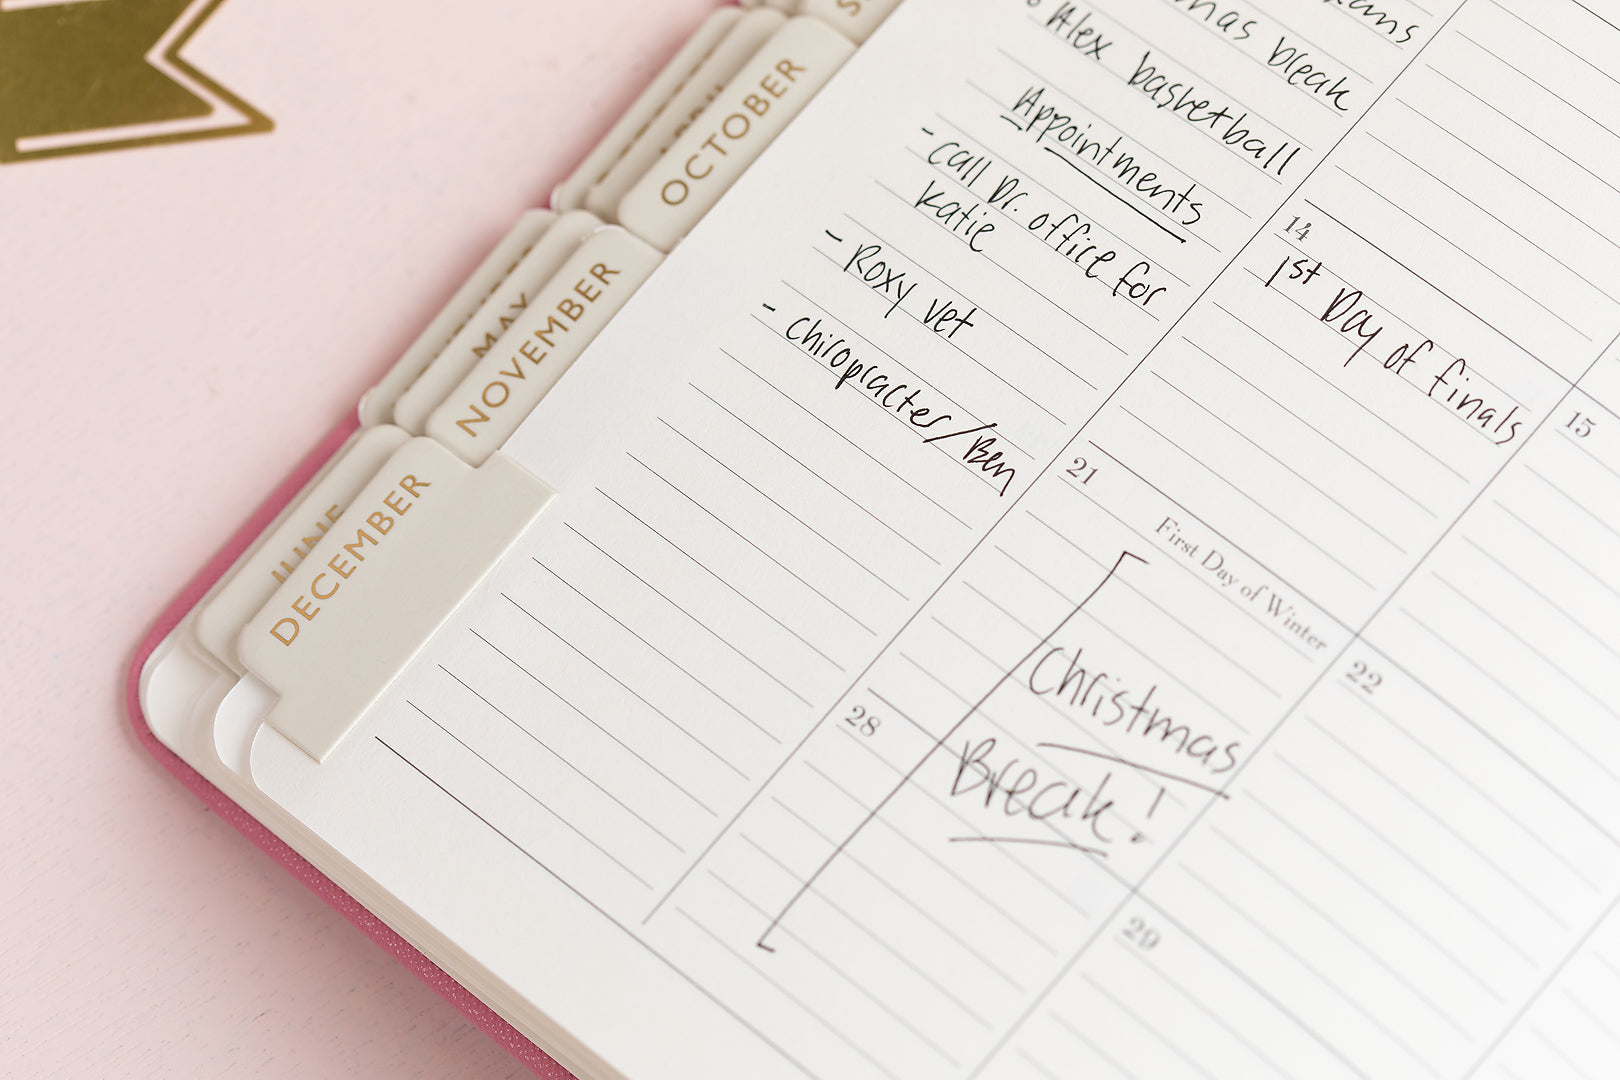 OCTOBER
MAY
NOVEMBER
JUNE
DECEMBER
break
Alex basketball
Appointments
- call Dr. office for
Katie
- Roxy vet
- chiropracter/Ben
14
1st Day of finals
15
21
First Day of Winter
Christmas
Break!
22
28
29